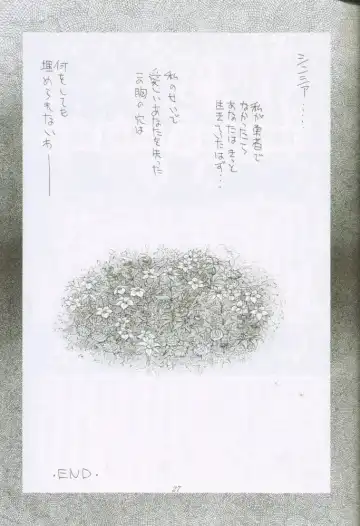 シンシア・・・・
私が勇者で
なかったら
あなたはきっと
生きてたはず・・・
私のせいで
愛しいあなたを失った
この胸の穴は
何をしても
埋められないわ――
・END・
27